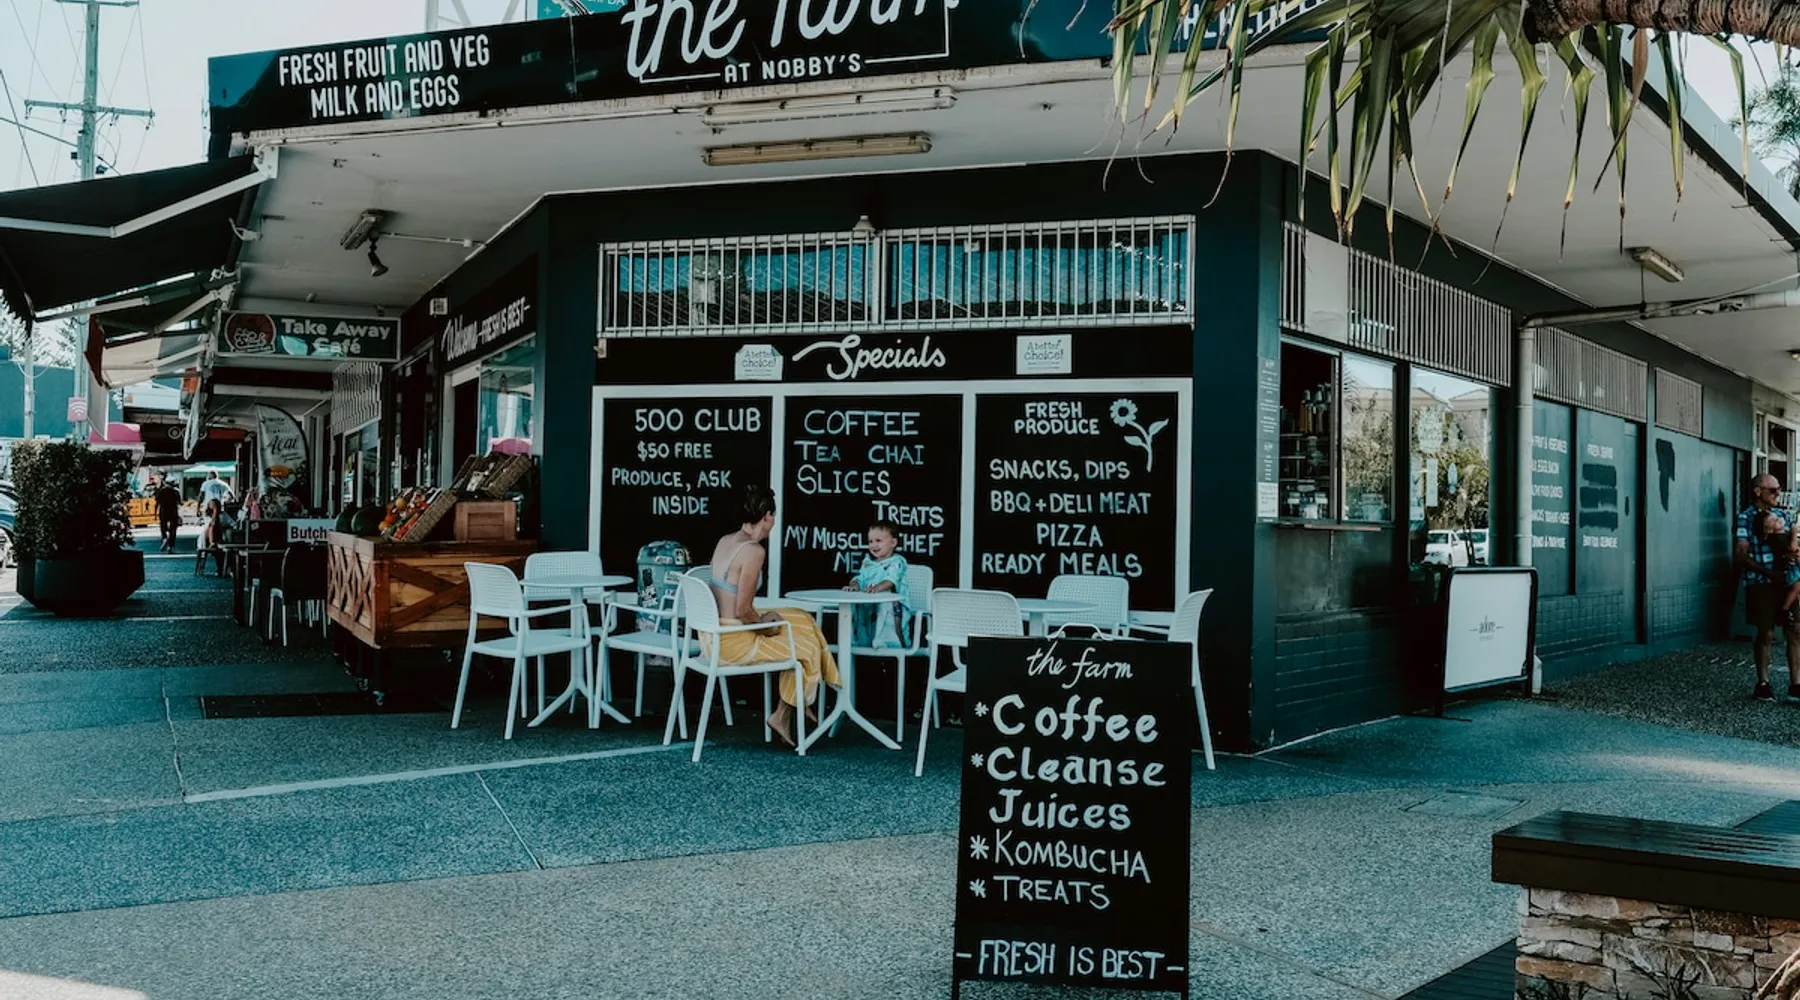 the Farm
AT NOBBY'S
FRESH FRUIT AND VEG
MILK AND EGGS
Take Away
Café
Welcome -FRESH IS BEST-
Acai
Butch
Specials
A better
choice!
A better
choice!
500 CLUB
$50 FREE
PRODUCE, ASK
INSIDE
COFFEE
TEA CHAI
SLICES
TREATS
MY MUSCLE CHEF
ME
FRESH
PRODUCE
SNACKS, DIPS
BBQ + DELI MEAT
PIZZA
READY MEALS
the farm
*Coffee
*Cleanse
Juices
*KOMBUCHA
*TREATS
-FRESH IS BEST-